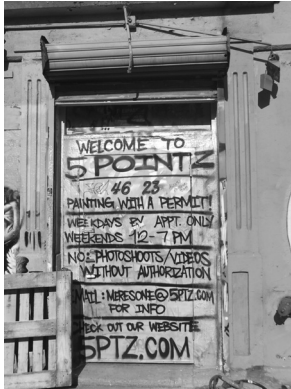 WELCOME TO
5 POINTZ
46 23
PAINTING WITH A PERMIT!
WEEKDAYS BY APPT. ONLY
WEEKENDS 12-7 PM
NO PHOTOSHOOTS/VIDEOS
WITHOUT AUTHORIZATION
MAIL: MERESONE@5PTZ.COM
FOR INFO
CHECK OUT OUR WEBSITE
5PTZ.COM